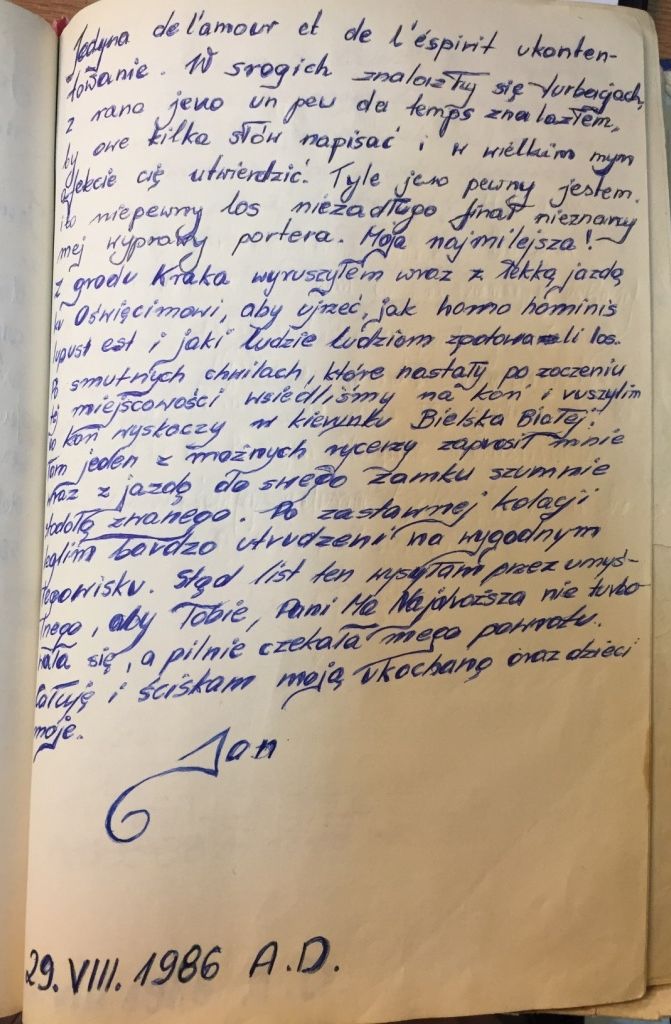 Jedyna de l'amour et de l'éspirit ukonten-
towanie. W srogich znalazłwszy się turbacjach,
z rana jeno un peu da temps znalazłem,
by owe kilka słów napisać i w wielkim mym
afekcie cię utwierdzić. Tyle jeno pewny jestem.
ile niepewny los niezadługo finał nieznany
mej wyprawy portera. Moja najmilejsza!
z grodu Kraka wyruszyłem wraz z lekką jazdą
ku Oświęcimowi, aby ujrzeć, jak homo hominis
lupust est i jaki ludzie ludziom zgotowali los.
Po smutnych chwilach, które nastały po zoczeniu
tej miejscowości wsiedliśmy na koń i ruszylim
co koń wyskoczy w kierunku Bielska Białej!
Tam jeden z możnych rycerzy zaprosił mnie
wraz z jazdą do swego zamku szumnie
stodołą znanego. Po zastawnej kolacji
leglim bardzo utrudzeni na wygodnym
legowisku. Stąd list ten wysyłam przez umyś-
lnego, aby Tobie, Pani Ma Najdroższa nie turbo-
wała się, a pilnie czekała mego powrotu.
Całuję i ściskam moją ukochaną oraz dzieci
moje.
Jan
29. VIII. 1986 A.D.